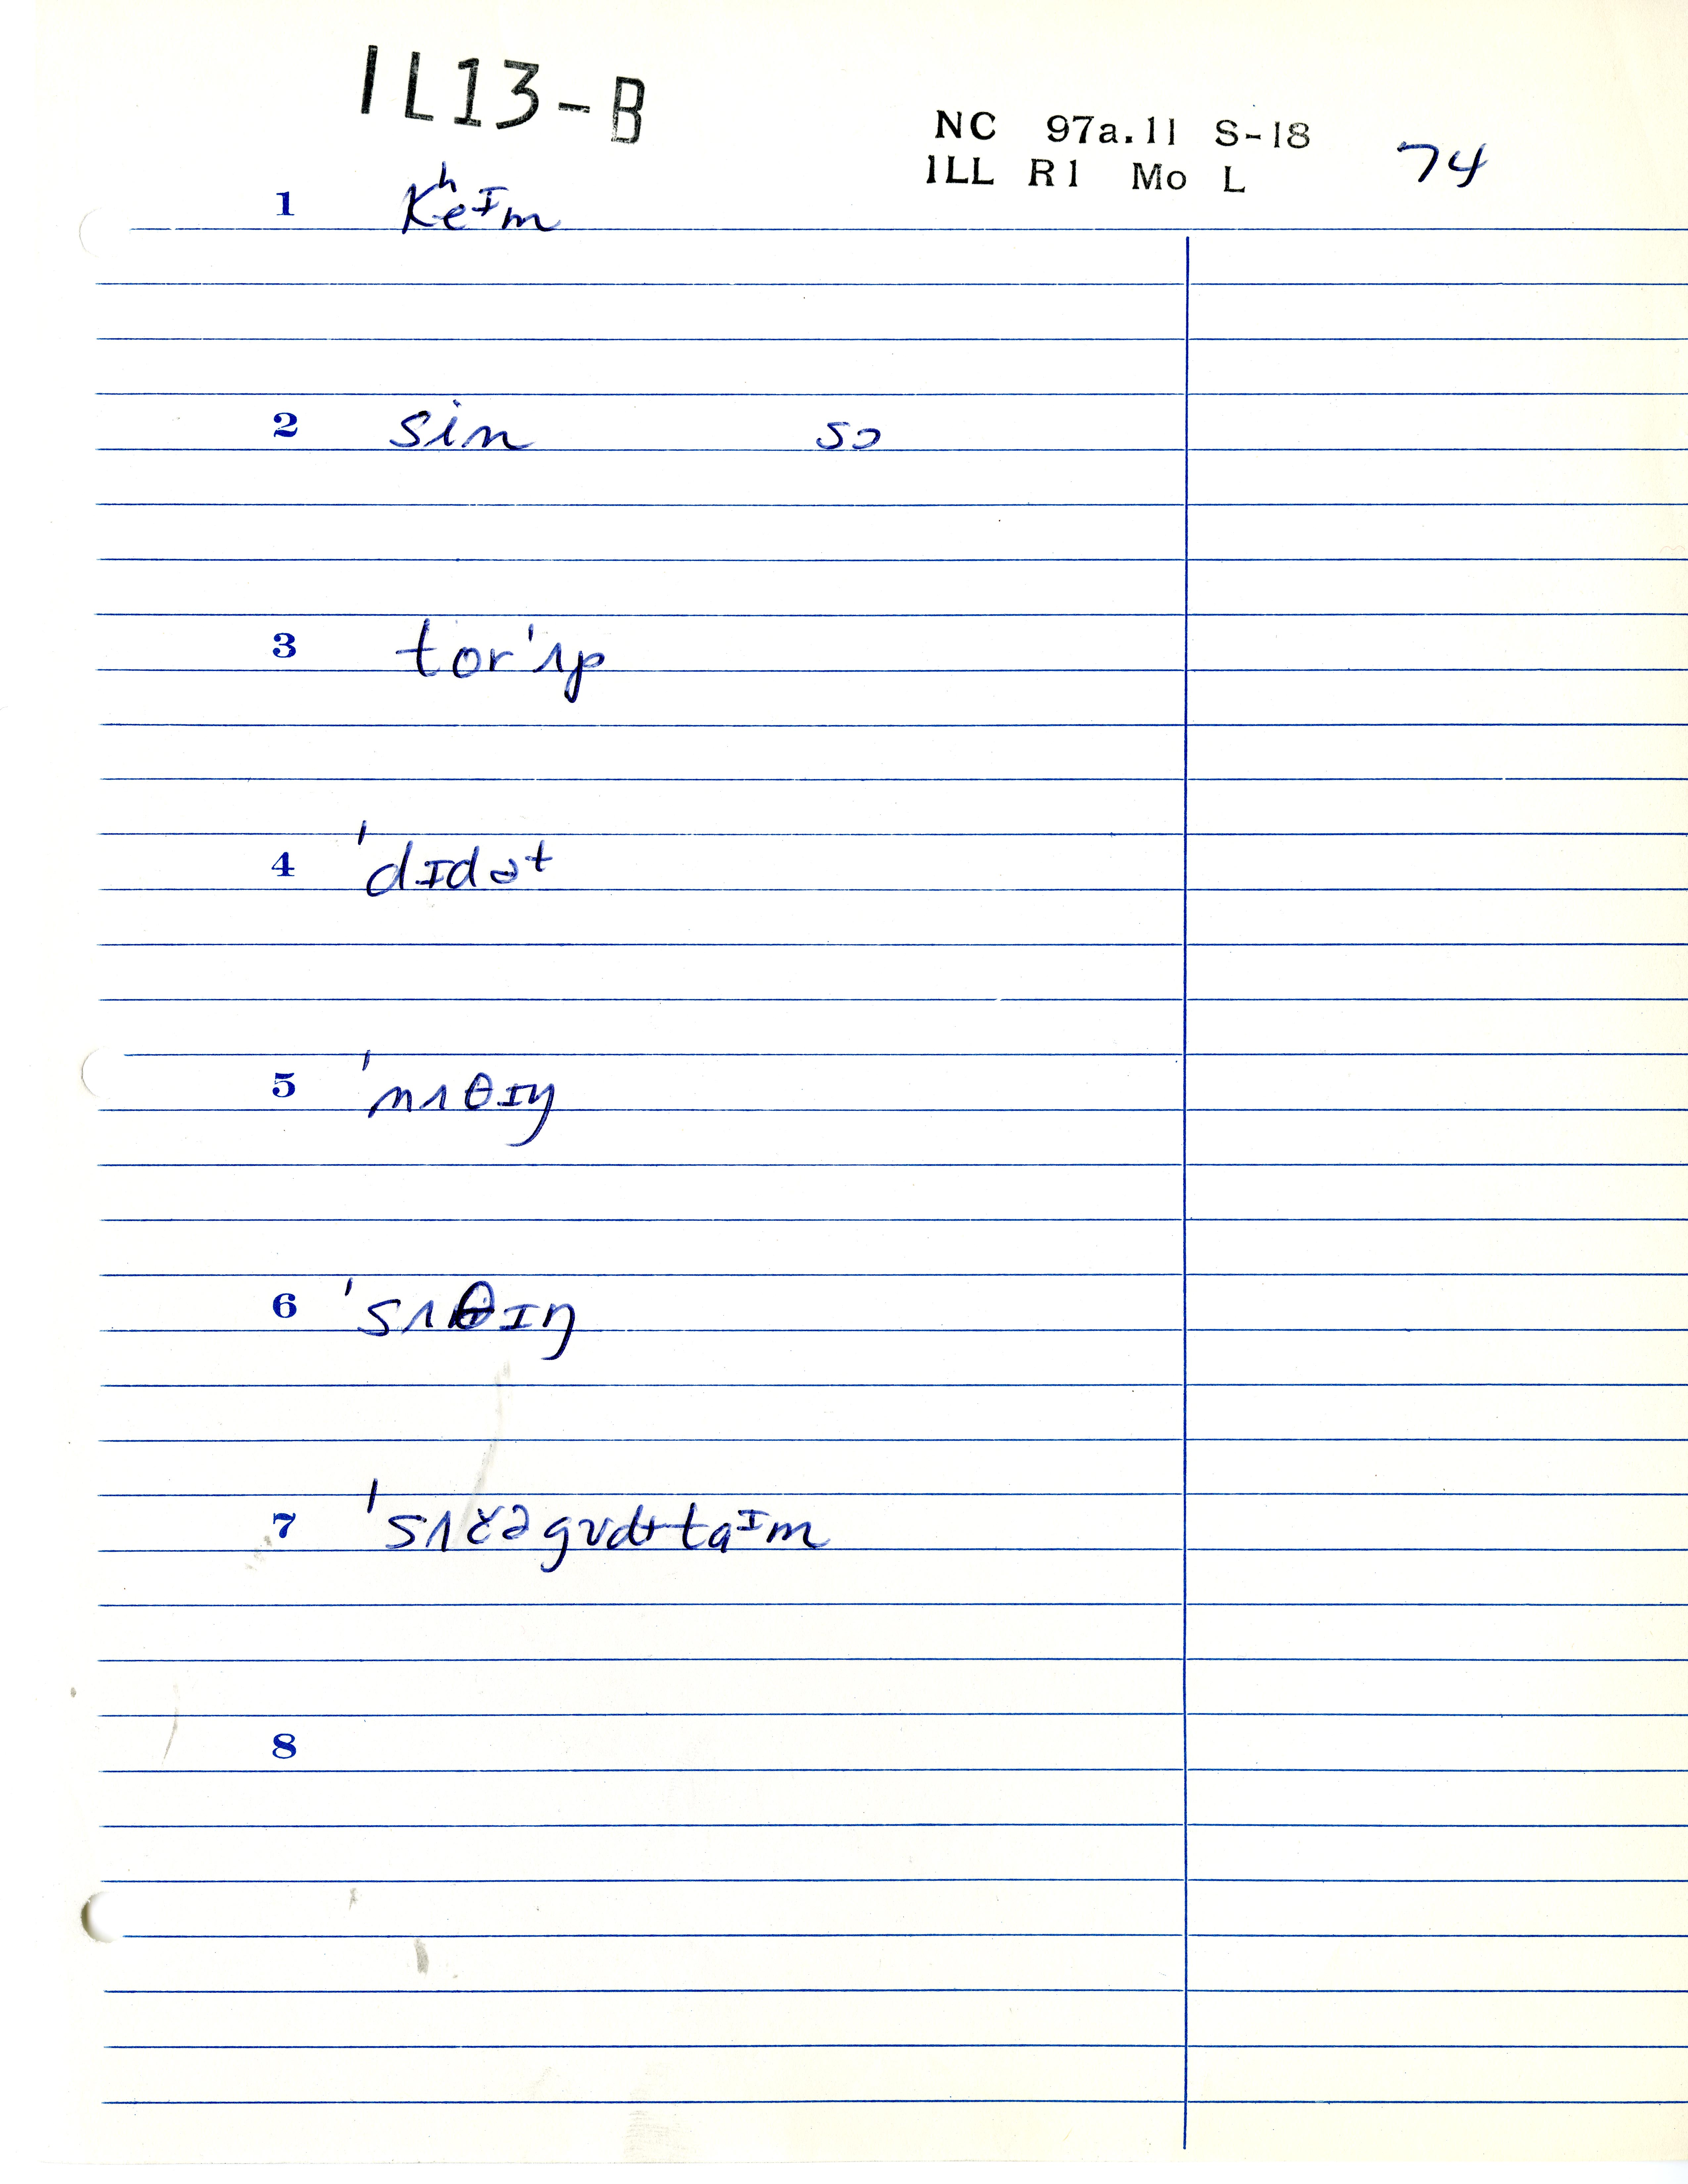 IL13-B
NC 97a.11 S-18 74
ILL R1 Mo L
1 Kʰeᴵm
2 sin sɔ
3 tor'ʌp
4 'dɪdət
5 'nʌθɪŋ
6 'sʌθɪŋ
7
8